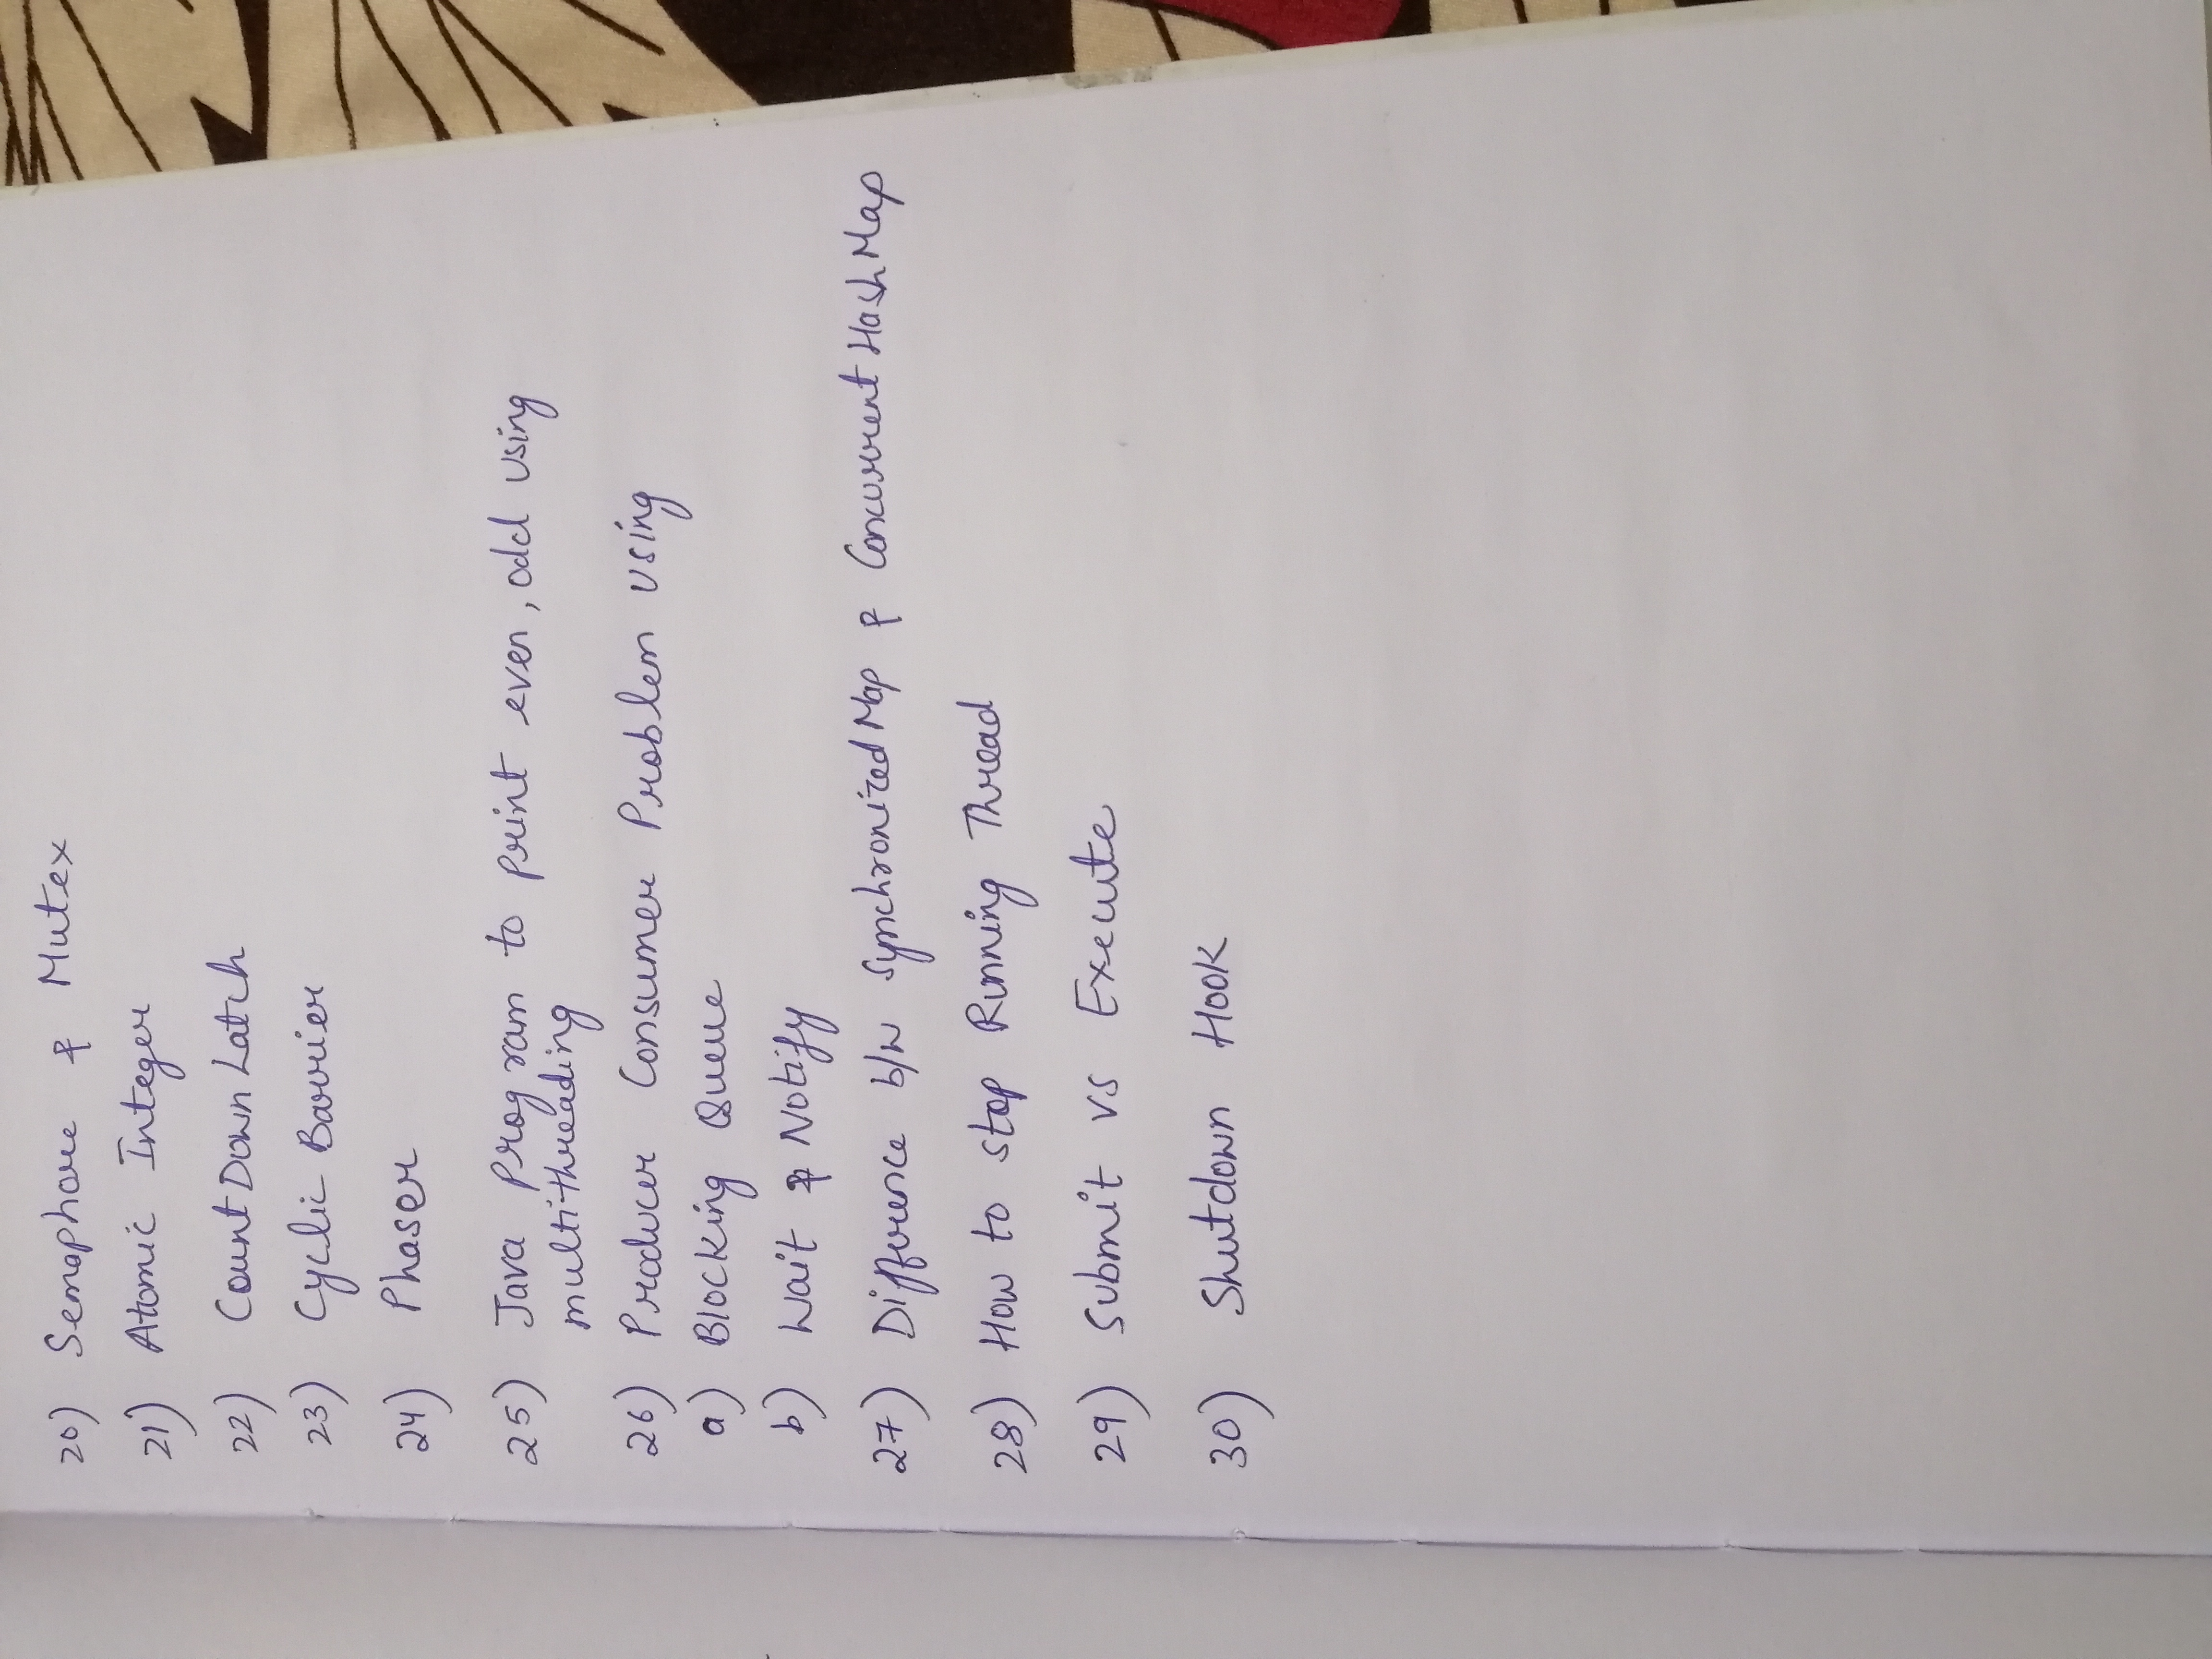 20) Semaphore & Mutex
21) Atomic Integer
22) CountDownLatch
23) Cyclic Barrier
24) Phaser
25) Java Program to print even, odd using
multithreading
26) Producer Consumer Problem using
a) Blocking Queue
b) Wait & Notify
27) Difference b/w SynchronizedMap & ConcurrentHashMap
28) How to stop Running Thread
29) Submit vs Execute
30) Shutdown Hook